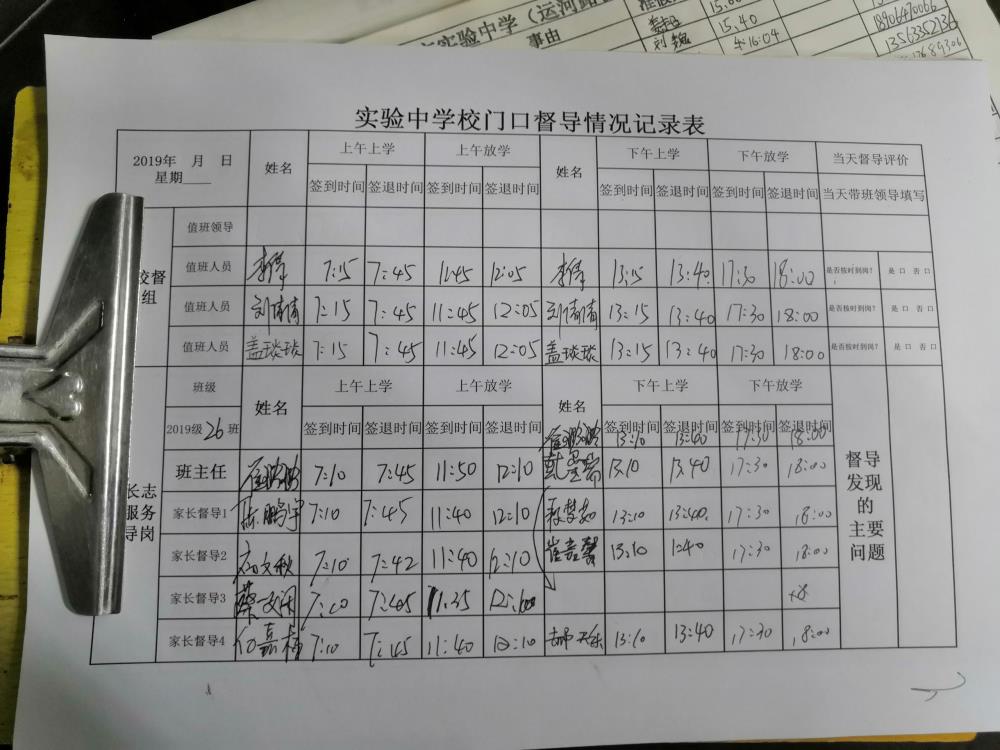 实验中学（运河路
事由
15.40
刘魏
午16:04
18906470066
13563352736
实验中学校门口督导情况记录表
2019年 月 日 星期____ 姓名 上午上学 上午放学 姓名 下午上学 下午放学 当天督导评价
签到时间 签退时间 签到时间 签退时间 签到时间 签退时间 签到时间 签退时间 当天带班领导填写
校督 组
值班领导
值班人员 李伟 7:15 7:45 11:45 12:05 李伟 13:15 13:40 17:30 18:00 是否按时到岗? 是口 否口
值班人员 刘倩倩 7:15 7:45 11:45 12:05 刘倩倩 13:15 13:40 17:30 18:00 是否按时到岗? 是口 否口
值班人员 盖琰琰 7:15 7:45 11:45 12:05 盖琰琰 13:15 13:40 17:30 18:00 是否按时到岗? 是口 否口
班级 姓名 上午上学 上午放学 姓名 下午上学 下午放学
2019级26班 签到时间 签退时间 签到时间 签退时间 签到时间 签退时间 签到时间 签退时间
13:10 13:40 17:30 18:00
班主任 7:10 7:45 11:50 12:10 13:10 13:40 17:30 18:00
长志 服务 导岗
督导发现的主要问题
家长督导1 陈鹏宇 7:10 7:45 11:40 12:10 13:10 13:40 17:30 18:00
家长督导2 7:10 7:42 11:40 12:10 崔嘉馨 13:10 1:40 17:30 18:00
家长督导3 7:10 7:45 11:35
家长督导4 7:10 7:45 11:40 12:10 13:10 13:40 17:30 18:00